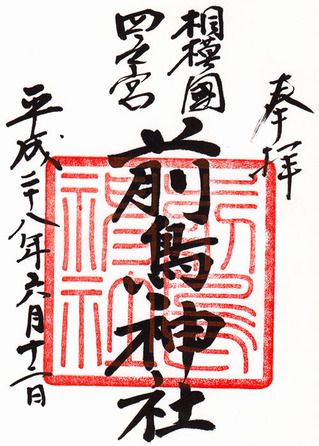 奉拝
相模國
四之宮
前鳥神社
平成二十八年六月十二日
前鳥神社